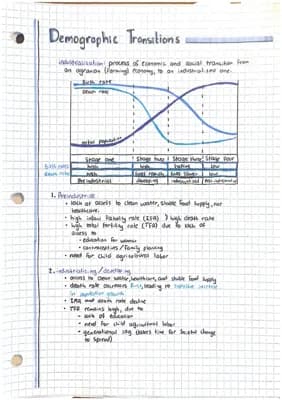 Demographic Transitions
industrialisation: process of economic and social transition from
an agrarian (farming) economy, to an industrialised one.
Birth rate
Death rate
total population
Stage one Stage two Stage three Stage four
birth rates high high falling low
death rate high falls rapidly falls slower low
Pre industrial developing industrialised Post-industrial
1. Preindustrial
• lack of access to clean water, stable food supply, nor
healthcare.
• high infant fatality rate (IFR) } high death rate
• high total fertility rate (TFR) due to lack of
access to
- education for women
- contraceptives / family planning
• need for child agricultural labor
2. industrializing / developing
• access to clean water, healthcare, and stable food supply
• death rate decreases first, leading to massive increase
in population growth
• IFR and death rate decline
• TFR remains high, due to
- lack of education
- need for child agricultural labor
- generational lag (takes time for societal change
to spread)